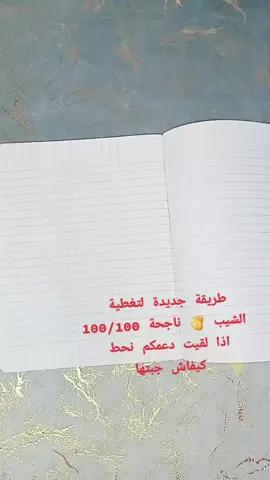 طريقة جديدة لتغطية
الشيب 👌 ناجحة 100/100
اذا لقيت دعمكم نحط
كيفاش جبتها